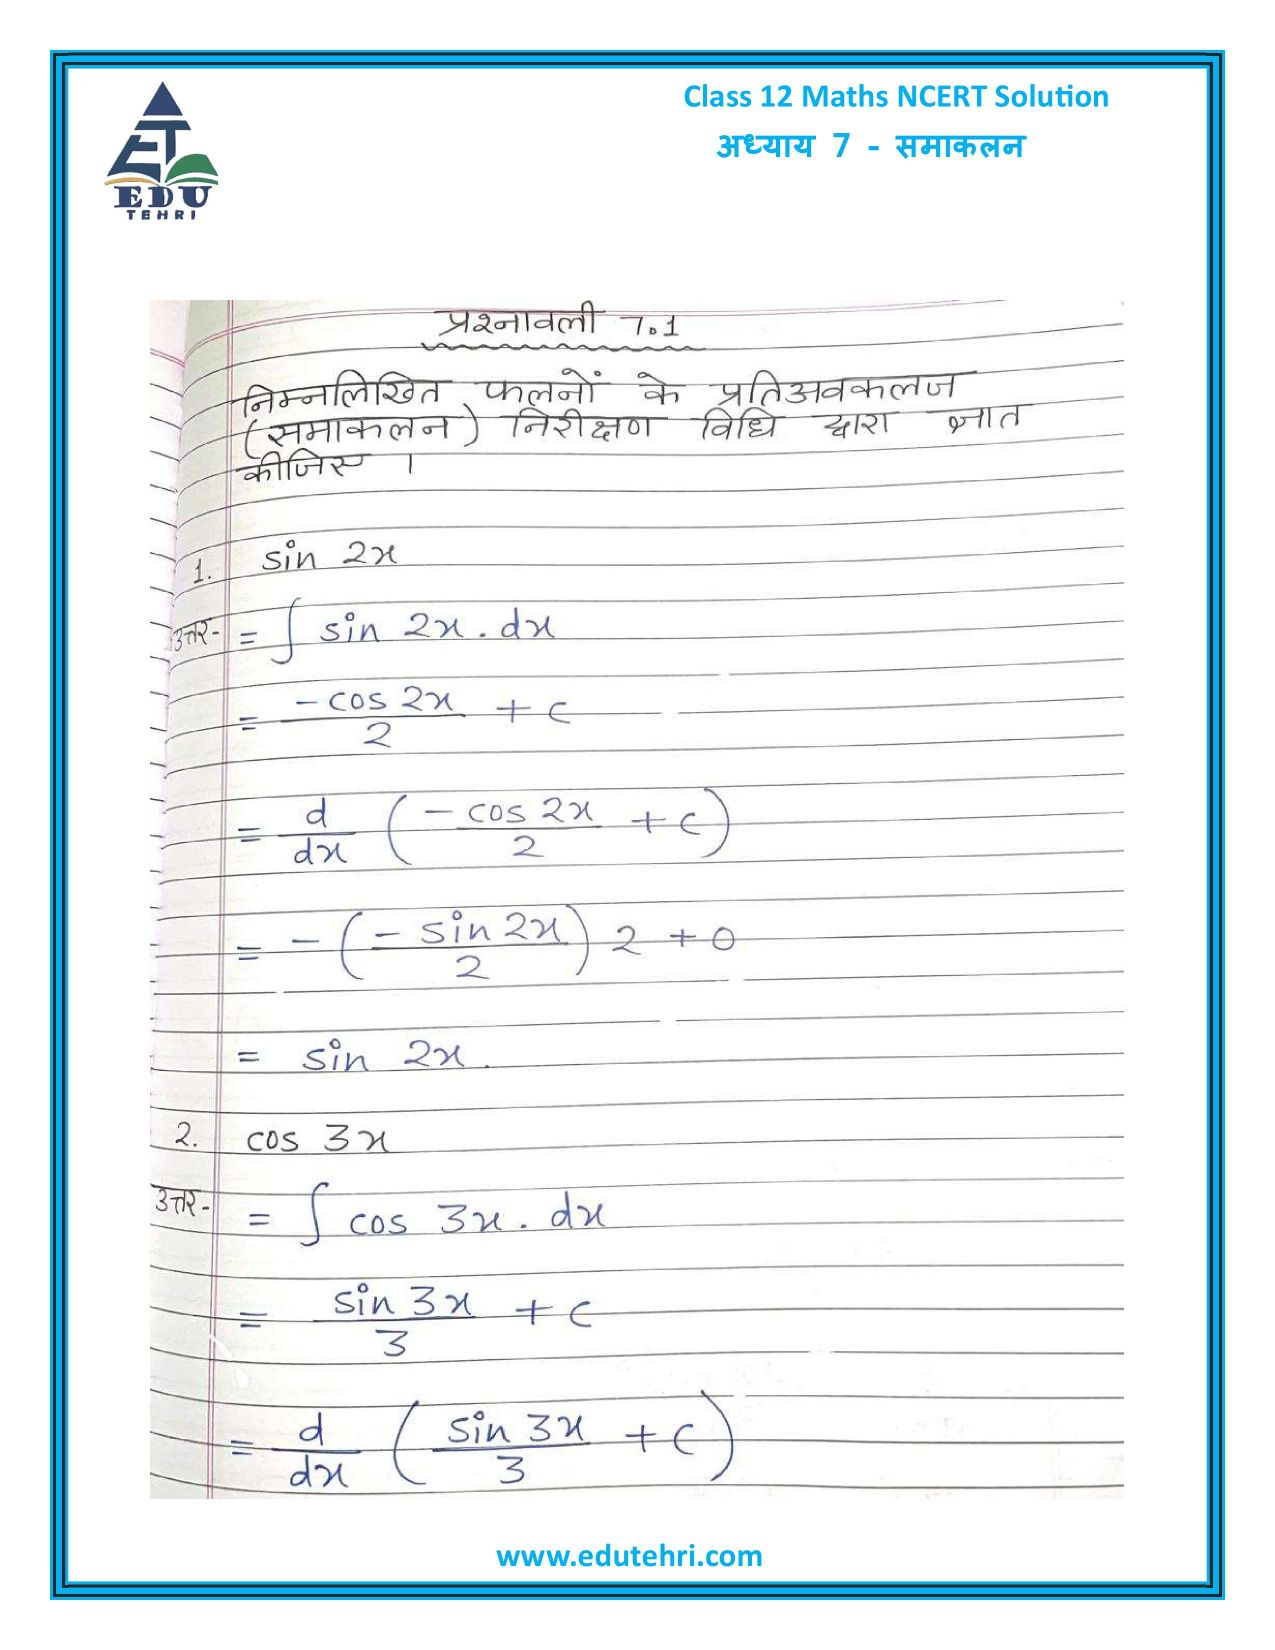 Class 12 Maths NCERT Solution
अध्याय 7 - समाकलन
ET
EDU
TEHRI
प्रश्नावली 7.1
निम्नलिखित फलनों के प्रतिअवकलज
(समाकलन) निरीक्षण विधि द्वारा ज्ञात
कीजिए ।
1. sin 2x
उत्तर- = ∫ sin 2x . dx
= -cos 2x / 2 + c
= d/dx ( -cos 2x / 2 + c )
= - ( -sin 2x / 2 ) 2 + 0
= sin 2x.
2. cos 3x
उत्तर- = ∫ cos 3x . dx
= sin 3x / 3 + c
= d/dx ( sin 3x / 3 + c )
www.edutehri.com